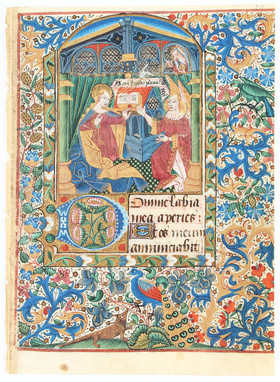 Domine labia
mea aperies:
Et os meum
annunciabit